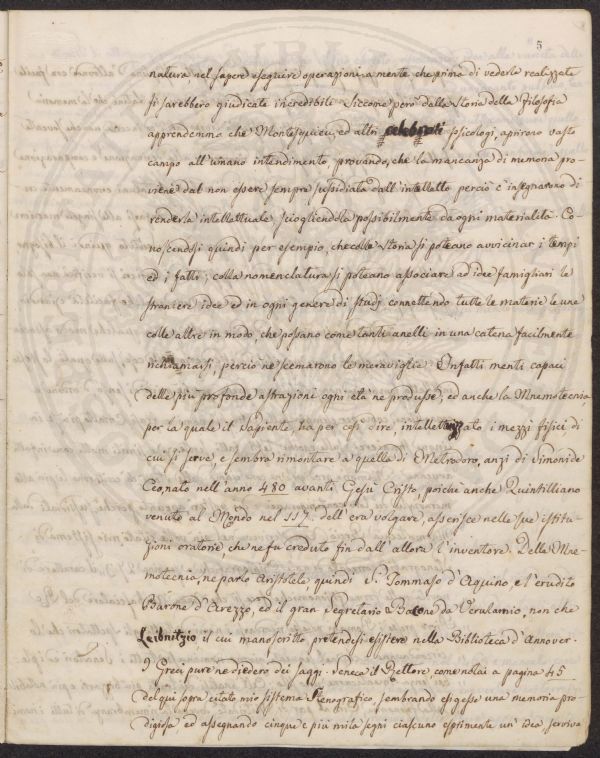 5
natura nel sapere eseguire operazioni a mente, che prima di vederle realizzate
si sarebbero giudicate incredibili. Siccome però dalla Storia della filosofia
apprendemmo che Montesquieu, ed altri celebrati Psicologi, aprirono vasto
campo all'umano intendimento, provando, che la mancanza di memoria pro-
viene dal non essere sempre sussidiata dall'intelletto perciò c'insegnarono di
renderla intellettuale sciogliendola possibilmente da ogni materialità. Co-
noscendosi quindi per esempio, che colla Storia si poteano avvicinar i tempi
ed i fatti; colla nomenclatura si poteano associare ad idee famigliari le
straniere idee e in ogni genere di studj connettendo tutte le materie le une
colle altre in modo, che possano come tanti anelli in una catena facilmente
richiamarsi, perciò ne scemarono le meraviglie. Infatti menti capaci
delle più profonde astrazioni ogni età ne produsse, ed anche la Mnemotecnia,
per la quale il Sapiente, ha per così dire, intellettualizzato i mezzi fisici di
cui si serve, e sembra rimontare a quella di Metrodoro, anzi di Simonide
Ceo, nato nell'anno 480 avanti Gesù Cristo, poichè anche Quintilliano
venuto al Mondo nel 117. dell'era volgare, asserisce nelle sue istitu-
zioni oratorie che ne fu creduto fin dall'allora l'inventore. Della Mne-
motecnia, ne parlò Aristotele quindi S. Tommaso d'Aquino, e l'erudito
Barone d'Arezzo, ed il gran Segretario Bacone da Verulamio, non che
Leibnitzio il cui manoscritto pretendesi esistere nella Biblioteca d'Annover.
I Greci pure ne diedero dei saggi. Seneca il Rettore, come notai a pagina 45
del qui sopra citato mio sistema Stenografico, sembrando esigesse una memoria pro-
digiosa, ed assegnando cinque e più mila segni ciascuno esprimente un'idea, serviva